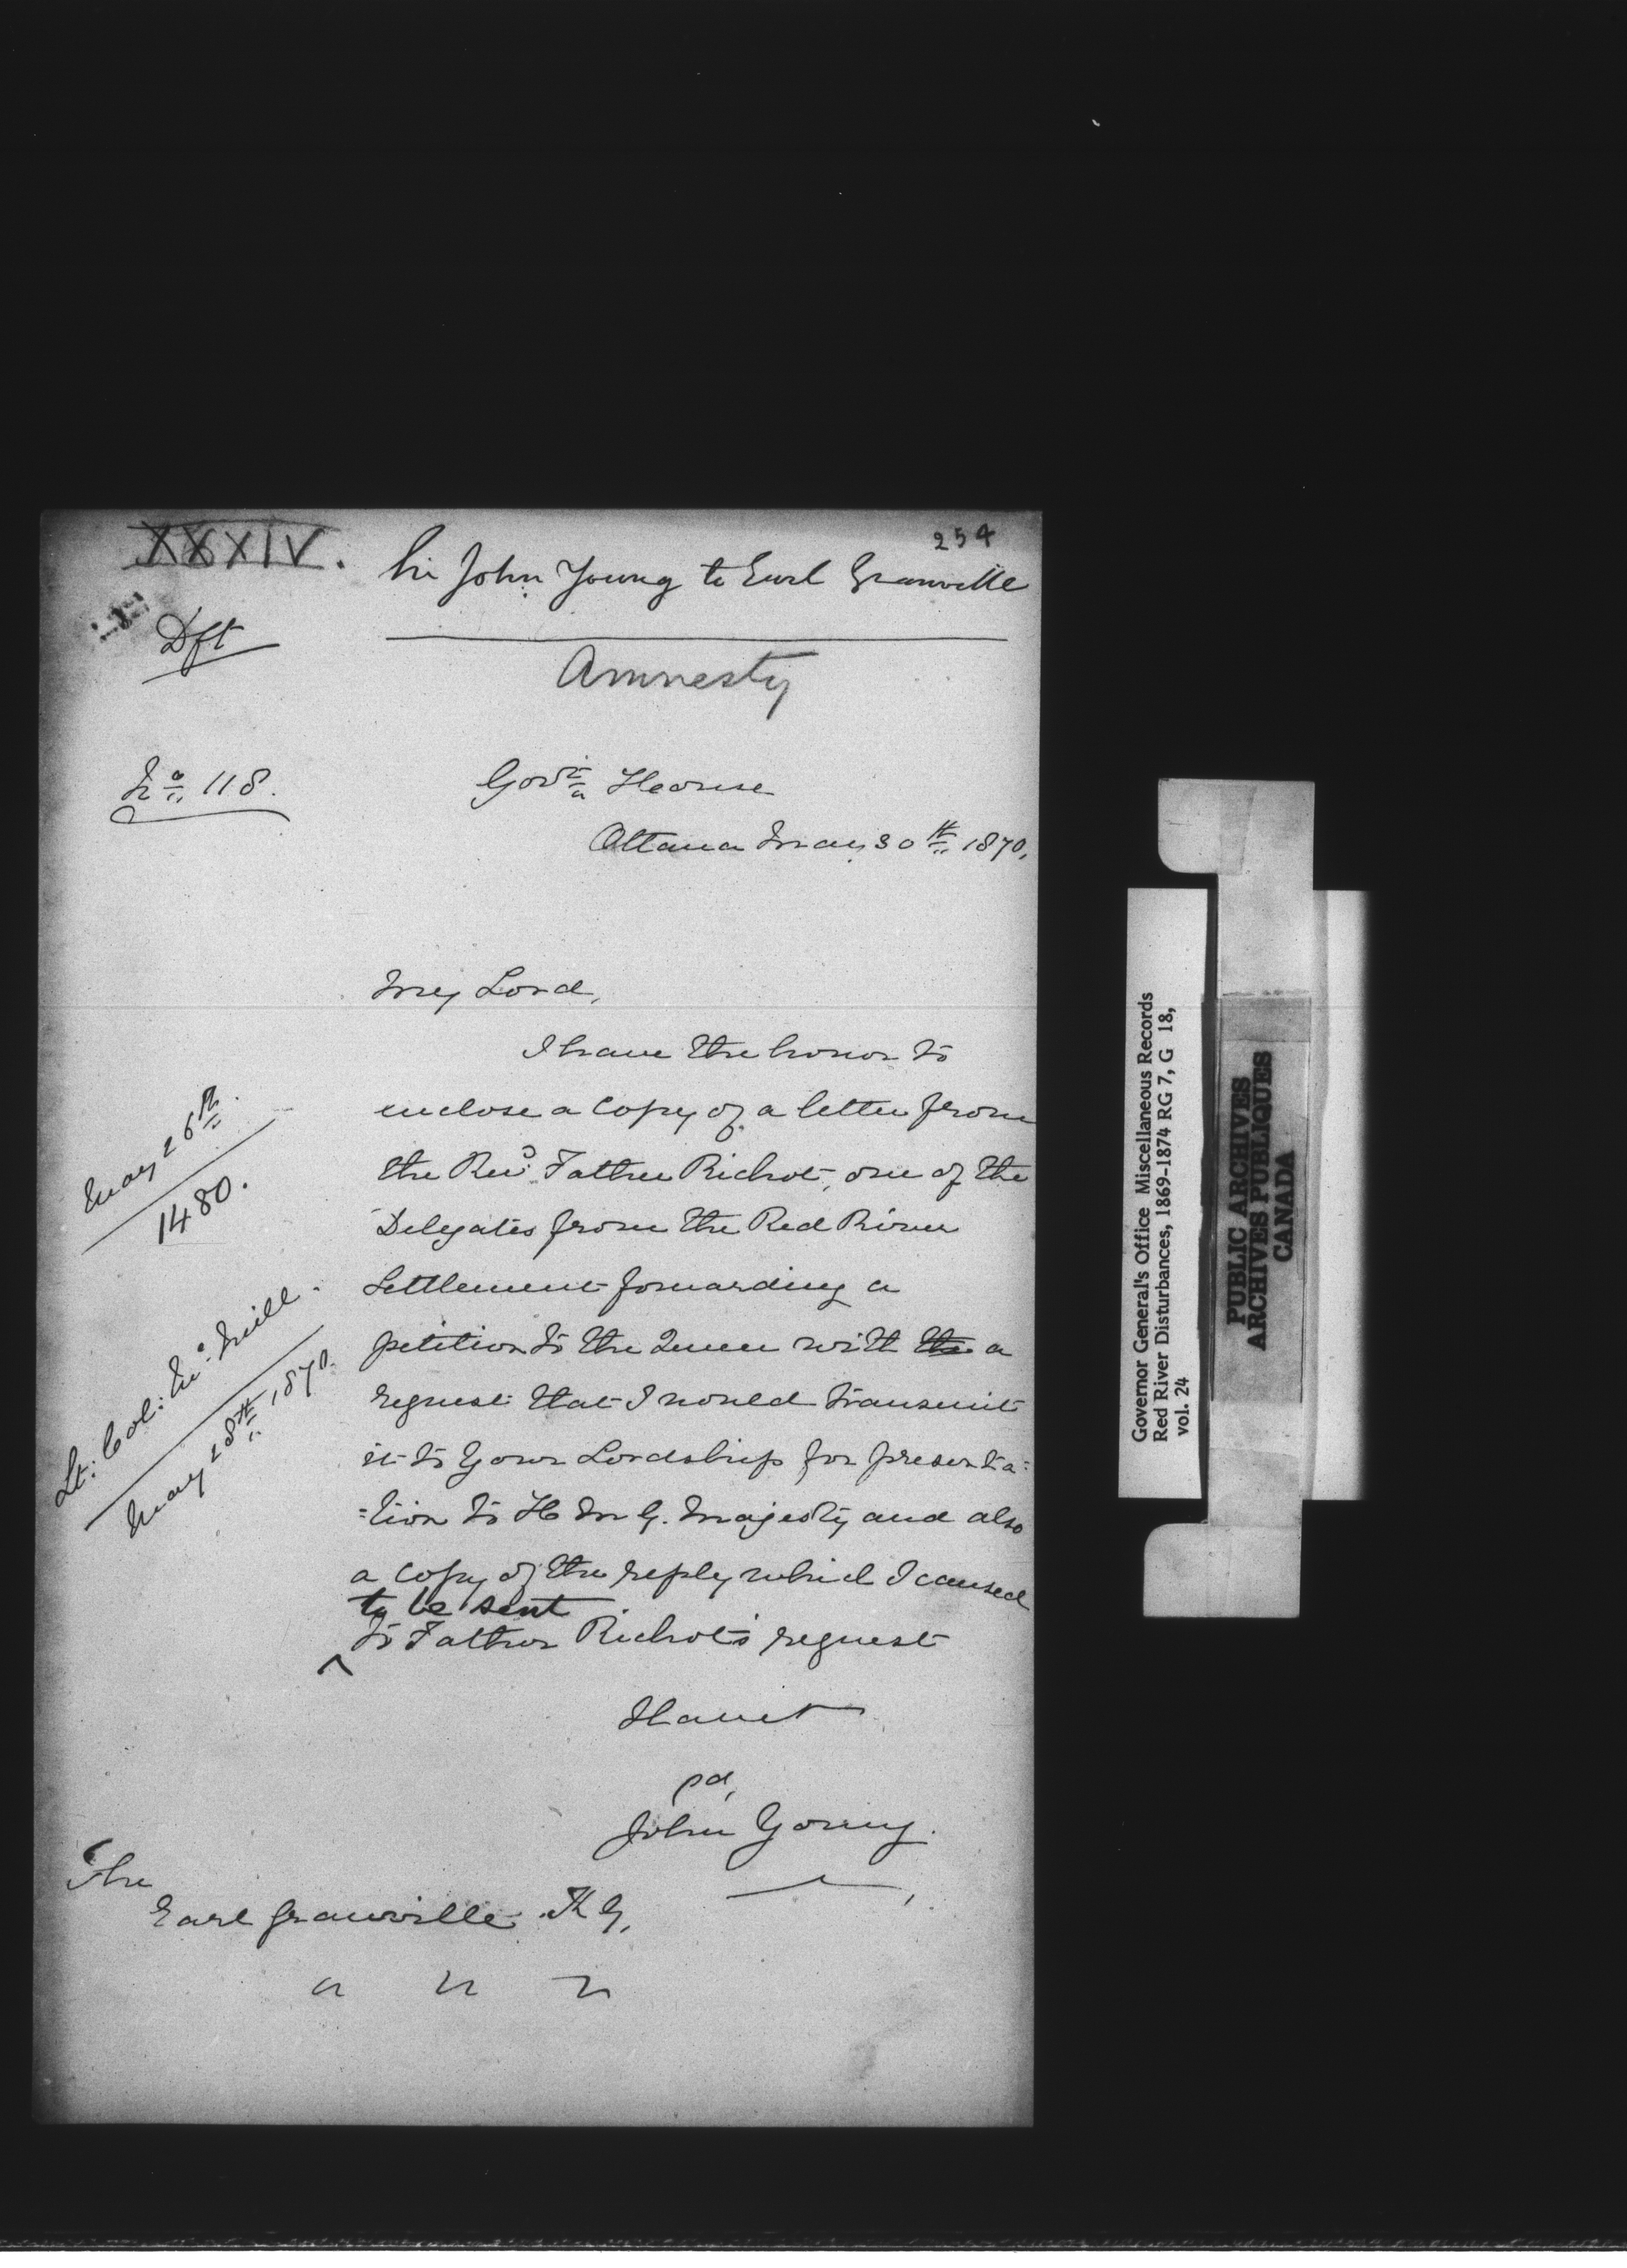 254
XXXIV.
Sir John Young to Earl Granville
Dft
Amnesty
No 118.
Govt House
Ottawa May 30th 1870.
My Lord,
I have the honor to
enclose a copy of a letter from
the Revd Father Richot, one of the
Delegates from the Red River
Settlement forwarding a
petition to the Queen with the a
request that I would transmit
it to Your Lordship for presenta=
=tion to H M G. Majesty and also
a copy of the reply which I caused
to be sent
^ to Father Richot's request
May 26th
1480.
Lt: Col: Mc Neill.
May 28th, 1870.
I have &
John Young.
The
Earl Granville K G,
Governor General's Office Miscellaneous Records
Red River Disturbances, 1869-1874 RG 7, G 18,
vol. 24
PUBLIC ARCHIVES
ARCHIVES PUBLIQUES
CANADA